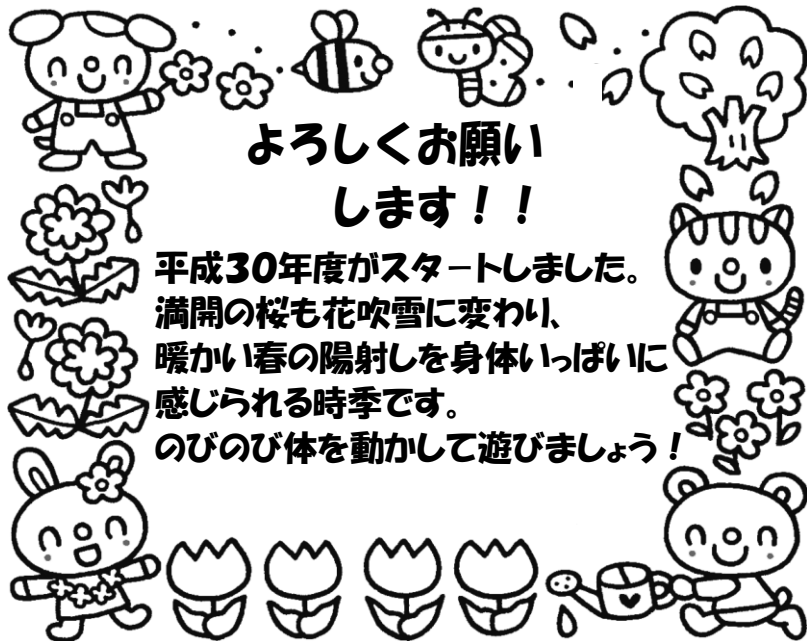 よろしくお願い
します！！
平成30年度がスタートしました。
満開の桜も花吹雪に変わり、
暖かい春の陽射しを身体いっぱいに
感じられる時季です。
のびのび体を動かして遊びましょう！